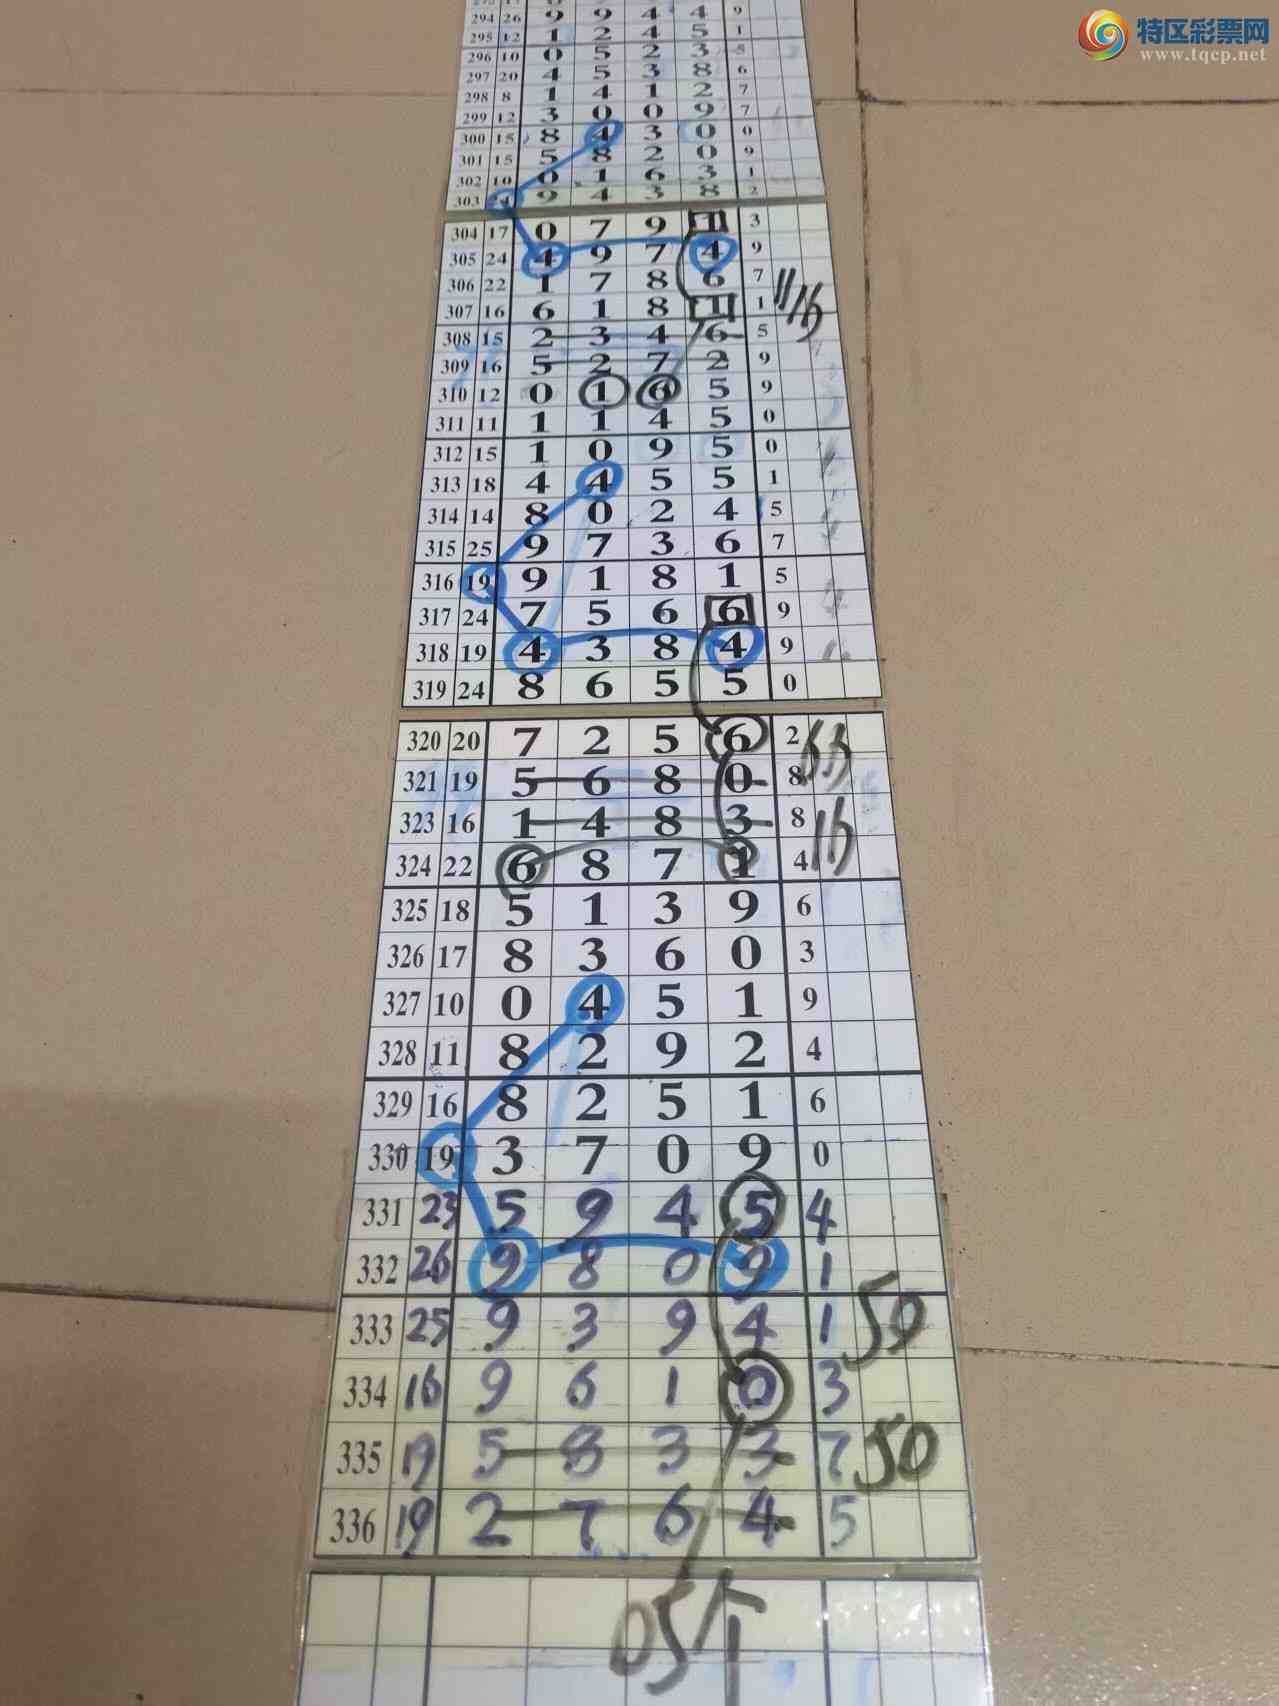 特区彩票网
www.tqcp.net
294 26 9 9 4 4 9
295 12 1 2 4 5 1
296 10 0 5 2 3 5
297 20 4 5 3 8 6
298 8 1 4 1 2 7
299 12 3 0 0 9 7
300 15 8 4 3 0 0
301 15 5 8 2 0 9
302 10 0 1 6 3 1
303 24 9 4 3 8 2
304 17 0 7 9 1 3
305 24 4 9 7 4 9
306 22 1 7 8 6 7
307 16 6 1 8 1 1
308 15 2 3 4 6 5
309 16 5 2 7 2 9
310 12 0 1 6 5 9
311 11 1 1 4 5 0
312 15 1 0 9 5 0
313 18 4 4 5 5 1
314 14 8 0 2 4 5
315 25 9 7 3 6 7
316 19 9 1 8 1 5
317 24 7 5 6 6 9
318 19 4 3 8 4 9
319 24 8 6 5 5 0
320 20 7 2 5 6 2
321 19 5 6 8 0 8
323 16 1 4 8 3 8
324 22 6 8 7 1 4
325 18 5 1 3 9 6
326 17 8 3 6 0 3
327 10 0 4 5 1 9
328 11 8 2 9 2 4
329 16 8 2 5 1 6
330 19 3 7 0 9 0
331 23 5 9 4 5 4
332 26 9 8 0 9 1
333 25 9 3 9 4 1 50
334 16 9 6 1 0 3
335 19 5 8 3 3 7 50
336 19 2 7 6 4 5
05个